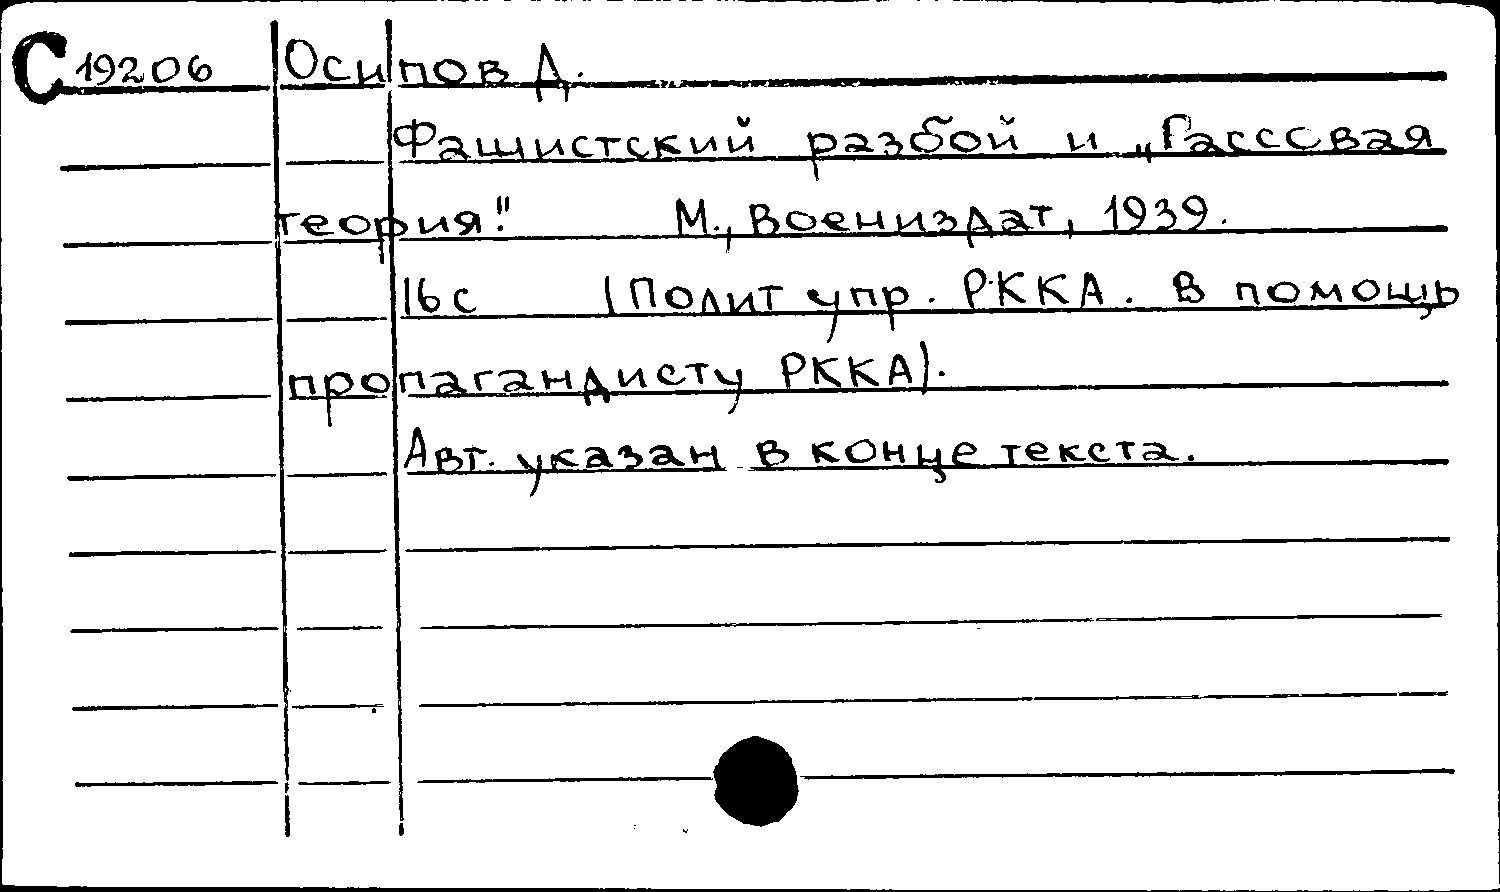 С 19206 Осипов Д.
Фашистский разбой и „Рассовая
теория." М., Воениздат, 1939.
16 с (Полит упр. РККА. В помощь
пропагандисту РККА).
Авт. указан в конце текста.